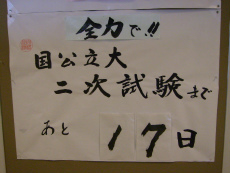 全力で!!
国公立大
二次試験まで
あと 17日